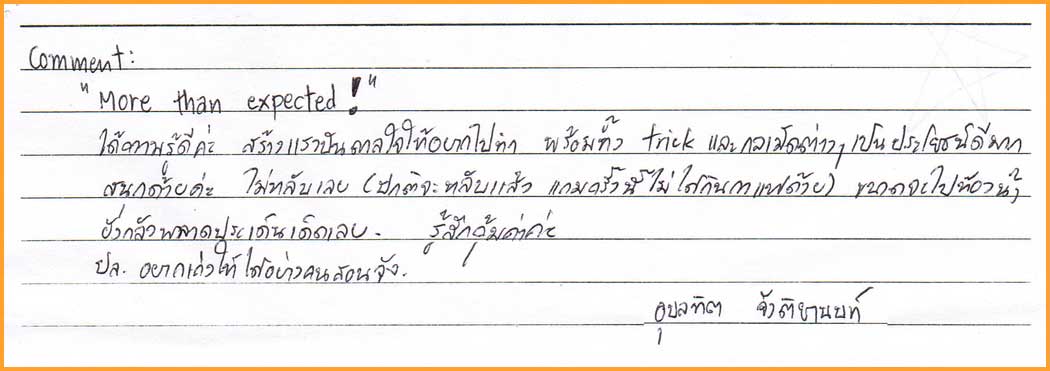 Comment:
"More than expected!"
ได้ความรู้ดีค่ะ สร้างแรงบันดาลใจให้อยากไปทำ พร้อมทั้ง trick และกลเม็ดต่างๆ เป็นประโยชน์ดีมาก
สนุกด้วยค่ะ ไม่หลับเลย (ปกติจะหลับแล้ว แถมครั้งนี้ไม่ได้กินกาแฟด้วย) ขนาดจะไปห้องน้ำ
ยังกลัวพลาดประเด็นเด็ดเลย. รู้สึกคุ้มค่าค่ะ
ปล. อยากเก่งให้ได้อย่างคนสอนจัง.